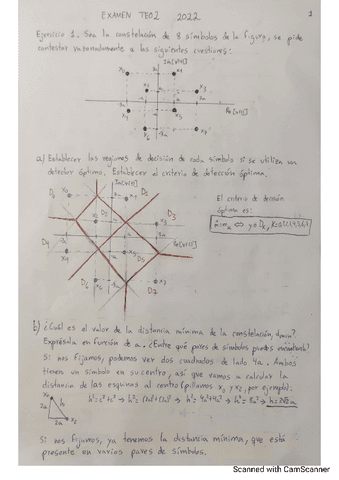 EXAMEN TEO2 2022
1
Ejercicio 1. Sea la constelación de 8 símbolos de la figura, se pide
contestar razonadamente a las siguientes cuestiones:
a) Establecer las regiones de decisión de cada símbolo si se utiliza un
detector óptimo. Establecer el criterio de detección óptima.
El criterio de decisión
óptima es:
b) ¿Cuál es el valor de la distancia mínima de la constelación, dmin?
Exprésala en función de a. ¿Entre qué pares de símbolos puedes encontrarla?
Si nos fijamos, podemos ver dos cuadrados de lado 4a. Ambos
tienen un símbolo en su centro, así que vamos a calcular la
distancia de las esquinas al centro (pillamos x₂ y x₁, por ejemplo):
h²=c²+c² → h²=(2a)²+(2a)² → h²=4a²+4a² → h²=8a² → h=2√2a
2a
2a
Si nos fijamos, ya tenemos la distancia mínima, que está
presente en varios pares de símbolos.
Scanned with CamScanner